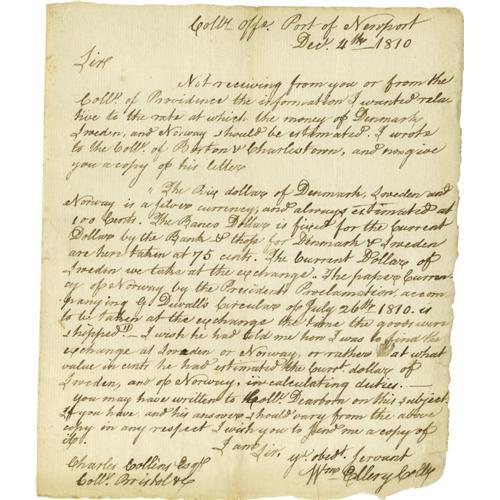 Collrs Offe. Port of Newport
Decr. 4th 1810
Sir,
Not receiving from you or from the
Collr. of Providence the information I wanted rela-
tive to the rate at which the money of Denmark,
Sweden, and Norway should be estimated. I wrote
to the Collr. of Boston & Charlestown, and now give
you a copy of his letter
"The Rix dollar of Denmark, Sweden and
Norway is a silver currency, and always estimated at
100 Cents. The Banco Dollar is fixed for the Current
Dollar by the Bank & those for Denmark & Sweden
are here taken at 75 cents. The Current Dollar of
Sweden we take at the exchange. The paper Curren-
cy of Norway by the Presidents Proclamation accom-
panying G. Duvall's Circular of July 26th 1810. is
to be taken at the exchange the time the goods were
shipped" — I wish he had told me how I was to find the
exchange at Sweden or Norway, or rather at what
value in cents he had estimated the Curt. dollar of
Sweden, and of Norway, in calculating duties. —
you may have written to Collr. Dearborn on this subject
If you have, and his answer should vary from the above
copy in any respect I wish you to send me a copy of
it.
I am, Sir, yr. obedt. servant
Wm Ellery Collr
Charles Collins Esqr
Collr. Bristol &c